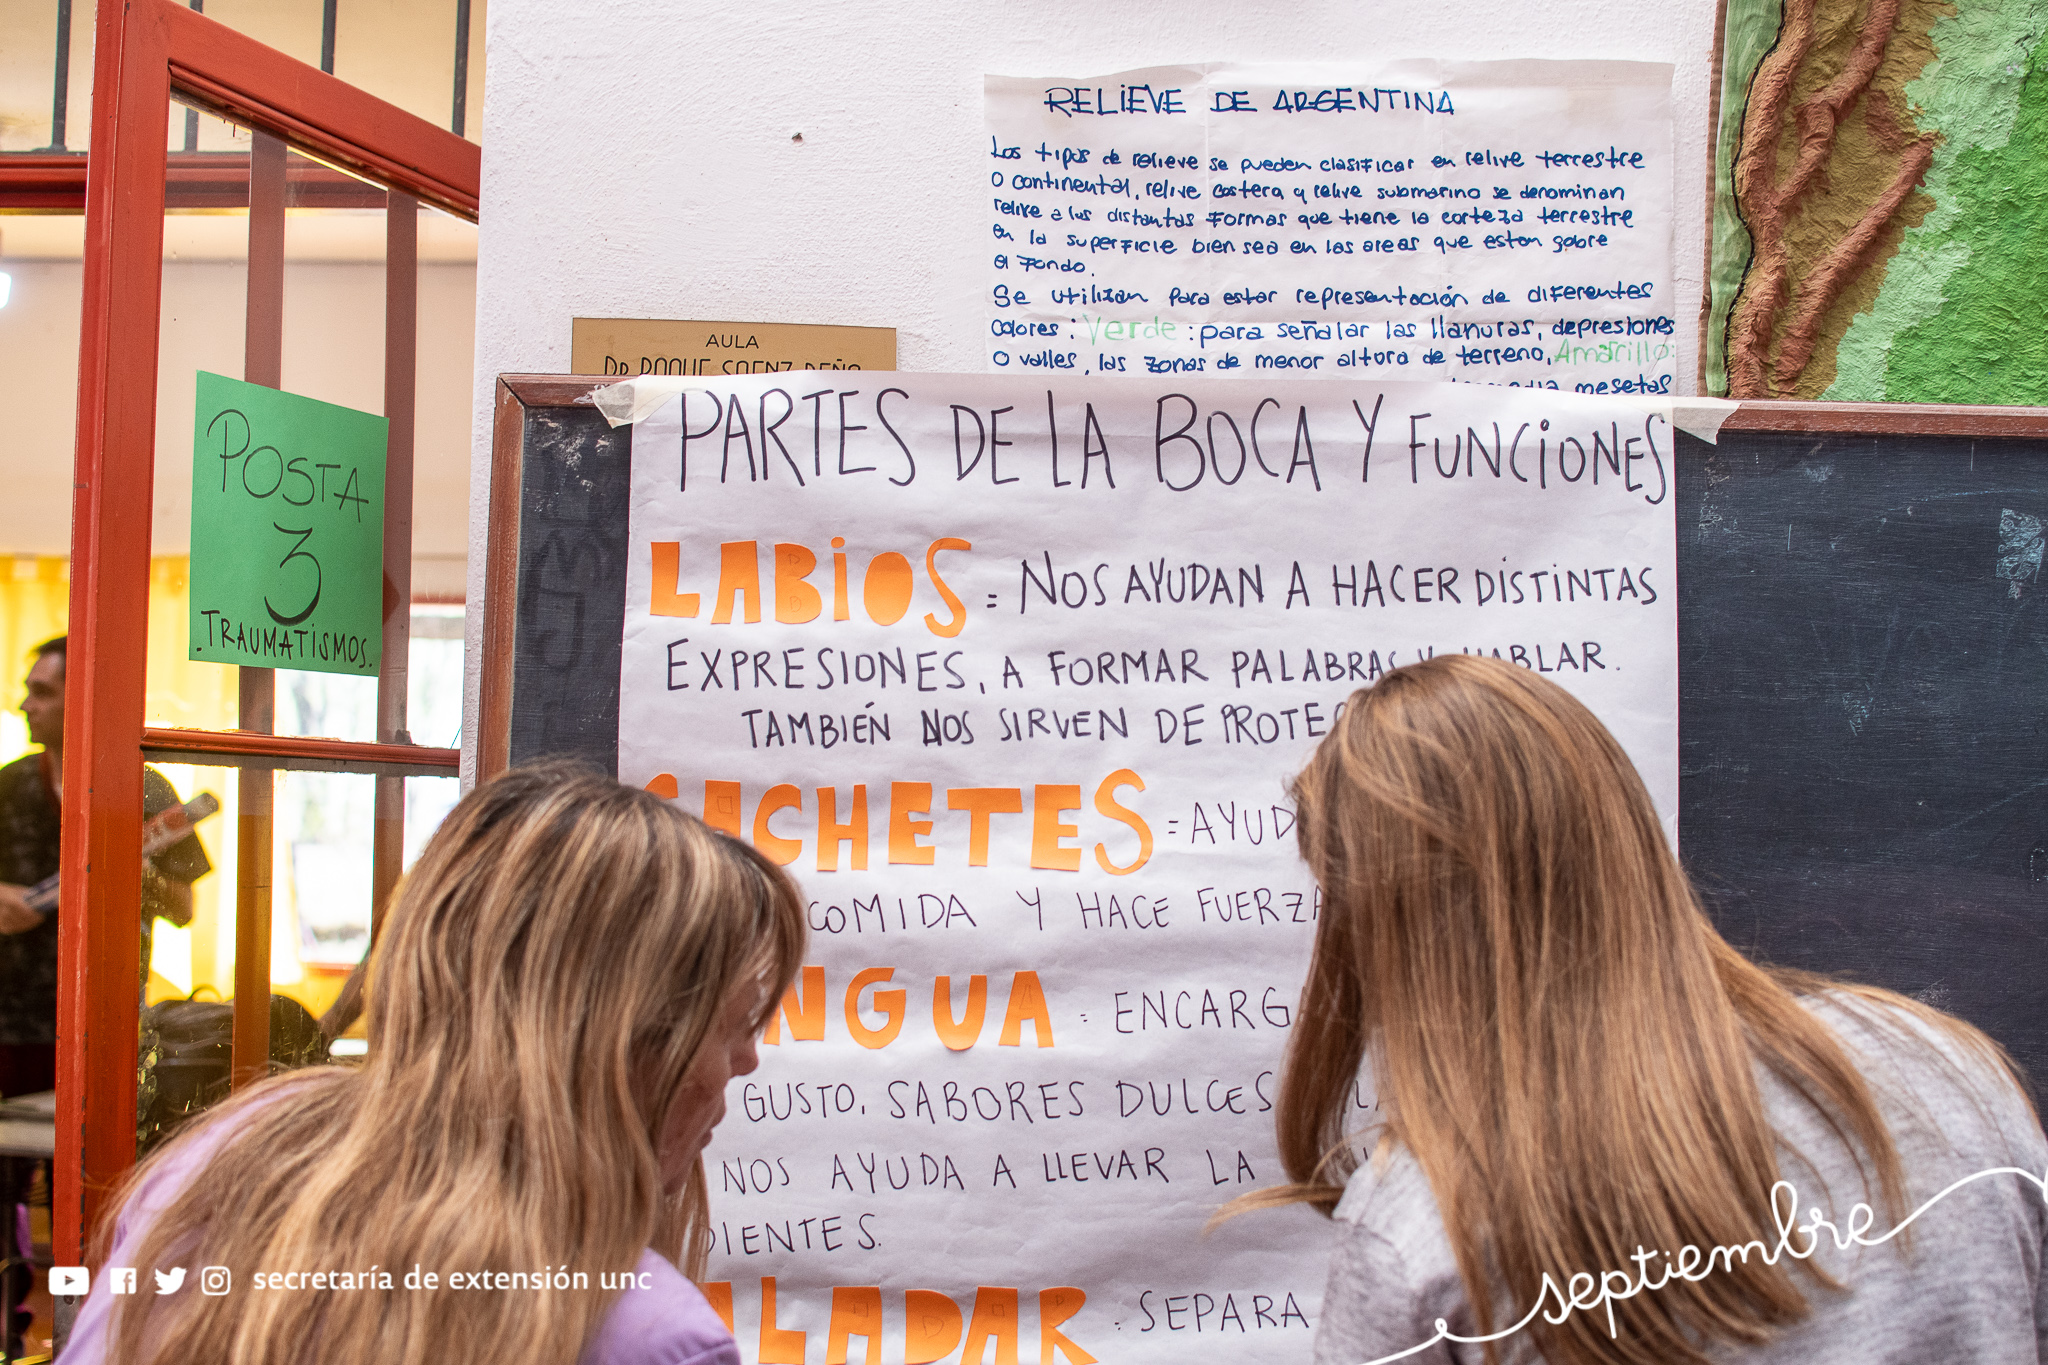 RELIEVE DE ARGENTINA
Los tipos de relieve se pueden clasificar en relive terrestre
o continental, relive costera y relive submarino se denominan
relive a las distantas formas que tiene la corteza terrestre
en la superficie bien sea en las areas que estan sobre
el fondo.
Se utilizan para estar representación de diferentes
colores: Verde: para señalar las llanuras, depresiones
o valles, las zonas de menor altora de terreno, Amarillo:
mesetas
AULA
DR. ROQUE SAENZ PEÑA
POSTA
3
.TRAUMATISMOS.
PARTES DE LA BOCA Y FUNCIONES
LABIOS = NOS AYUDAN A HACER DISTINTAS
EXPRESIONES, A FORMAR PALABRAS Y HABLAR.
TAMBIÉN NOS SIRVEN DE PROTEC
CACHETES = AYUD
COMIDA Y HACE FUERZA
NGUA = ENCARGA
GUSTO. SABORES DULCES
NOS AYUDA A LLEVAR LA
DIENTES.
ALADAR = SEPARA
secretaría de extensión unc
septiembre